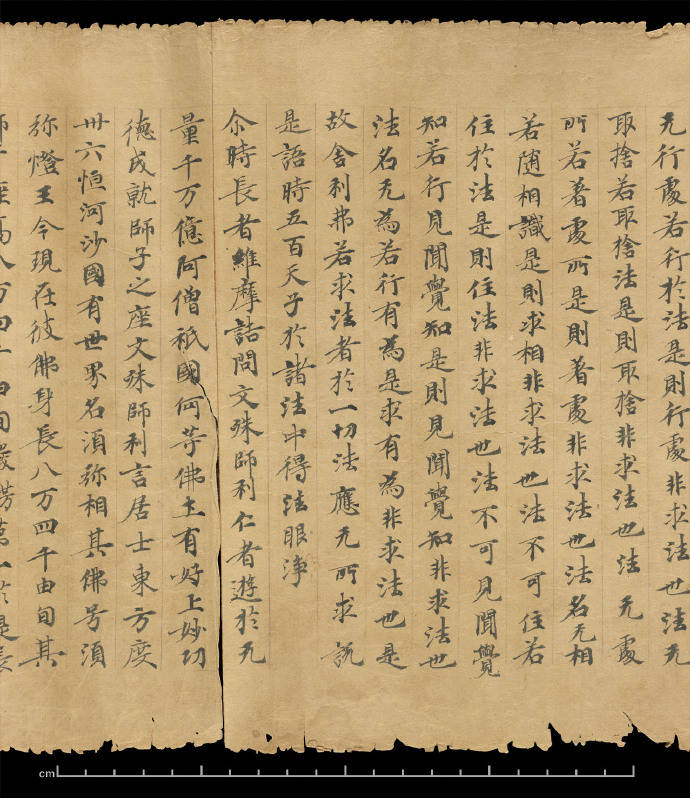 无行處若行於法是則行處非求法也法无
取捨若取捨法是則取捨非求法也法无處
所若著處所是則著處非求法也法名无相
若随相識是則求相非求法也法不可住若
住於法是則住法非求法也法不可見聞覺
知若行見聞覺知是則見聞覺知非求法也
法名无為若行有為是求有為非求法也是
故舍利弗若求法者於一切法應无所求說
是語時五百天子於諸法中得法眼淨
尒時長者維摩詰問文殊師利仁者遊於无
量千万億阿僧祇國何等佛土有好上妙功
德成就師子之座文殊師利言居士東方度
卅六恒河沙國有世界名湏弥相其佛号湏
弥燈王今現在彼佛身長八万四千由旬其
師子座高八万四千由旬嚴